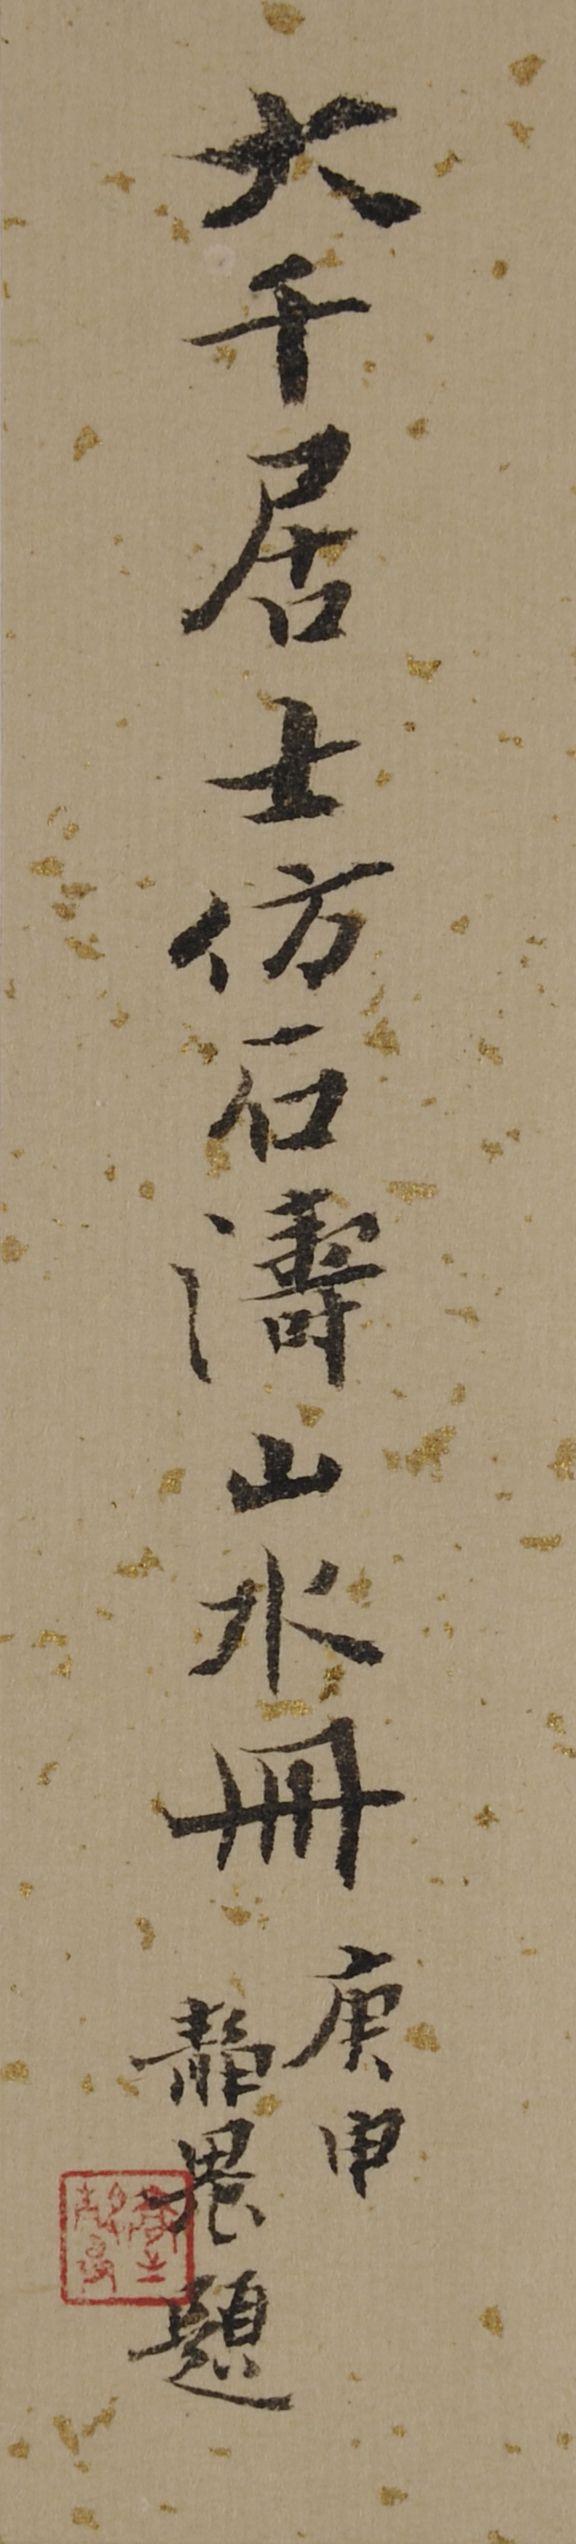 大千居士仿石濤山水冊
庚申
靜畏題